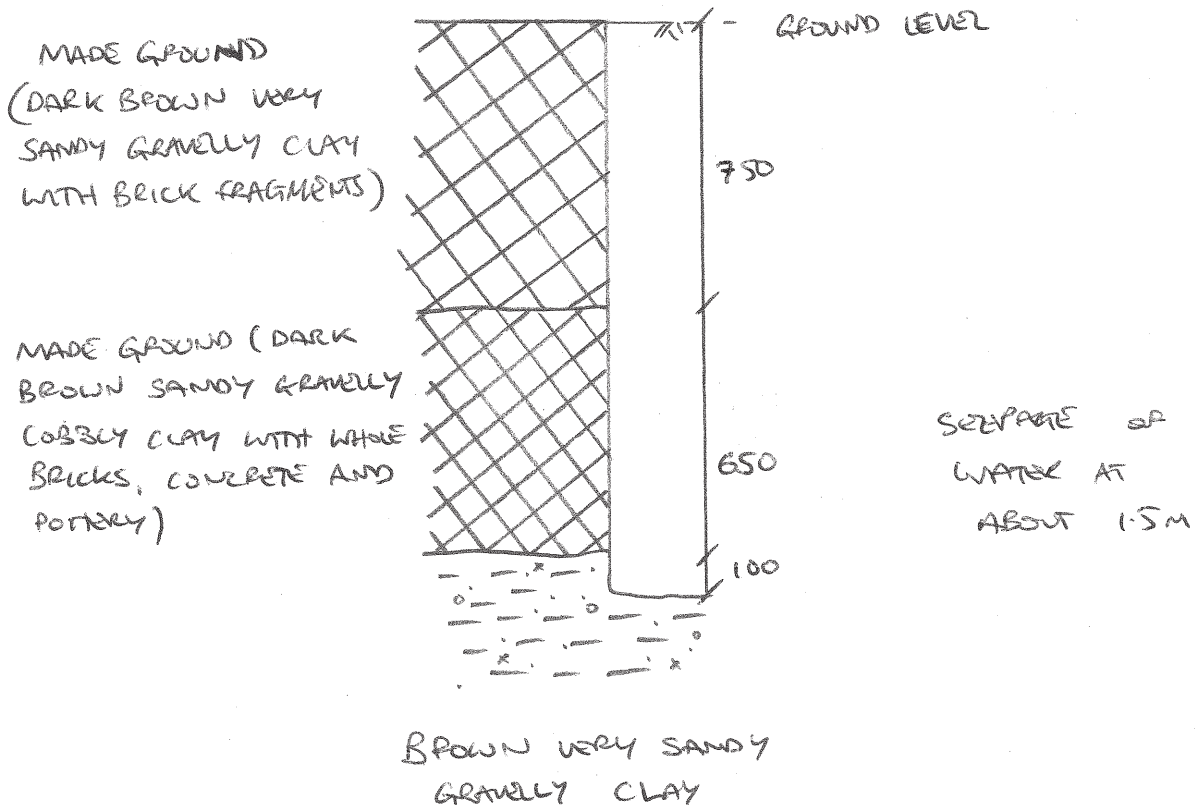 GROUND LEVEL
MADE GROUND
(DARK BROWN VERY
SANDY GRAVELLY CLAY
WITH BRICK FRAGMENTS)
750
MADE GROUND (DARK
BROWN SANDY GRAVELLY
COBBLY CLAY WITH WHOLE
BRICKS, CONCRETE AND
POTTERY)
650
SEEPAGE OF
WATER AT
ABOUT 1.5M
100
BROWN VERY SANDY
GRAVELLY CLAY